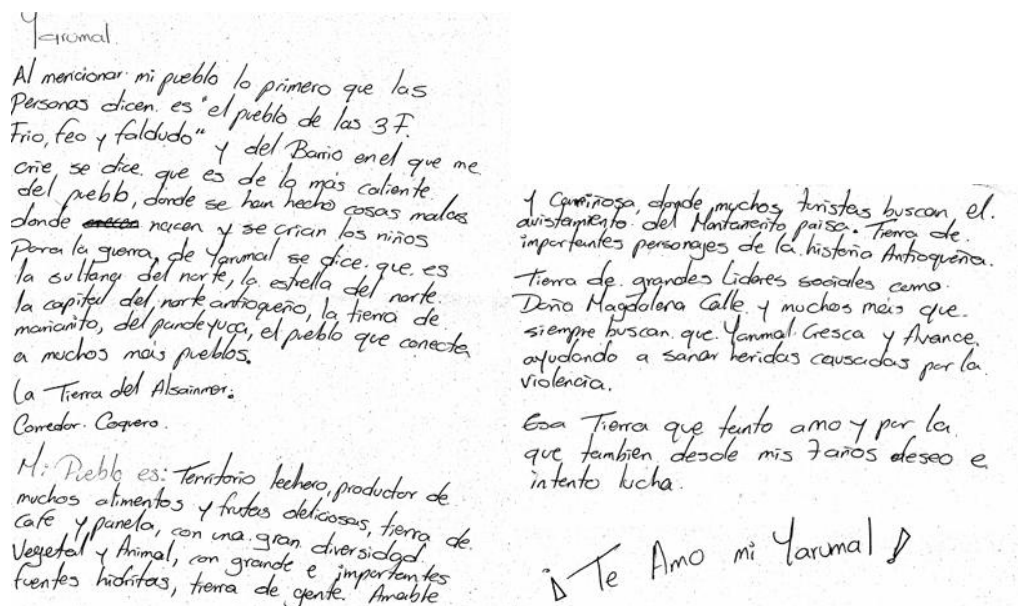 Yarumal.
Al mencionar mi pueblo lo primero que las
Personas dicen es "el pueblo de las 3 F.
Frio, feo y faldudo" y del Barrio en el que me
crie, se dice que es de lo más caliente
del pueblo, donde se han hecho cosas malas
donde nacen y se crian los niños
Para la guerra, de Yarumal se dice que es
la sultana del norte, la estrella del norte
la capital del norte antioqueño, la tierra de
marianito, del pandeyuca, el pueblo que conecta
a muchos más pueblos.
La Tierra del Alsainmer.
Corredor Coquero.
Mi Pueblo es: Territorio lechero, productor de
muchos alimentos y frutas deliciosas, tierra de
café y panela, con una gran diversidad
Vegetal y Animal, con grande e importantes
fuentes hidritas, tierra de gente Amable
Y Cariñosa, donde muchos turistas buscan el
avistamiento del Montañerito paisa. Tierra de
importantes personajes de la historia Antioqueña.
Tierra de grandes Lideres sociales como
Doña Magdalena Calle y muchos más que
siempre buscan que Yarumal Cresca y Avance,
ayudando a sanar heridas causadas por la
violencia.
Esa Tierra que tanto amo y por la
que tambien desde mis 7 años deseo e
intento lucha.
¡Te Amo mi Yarumal!